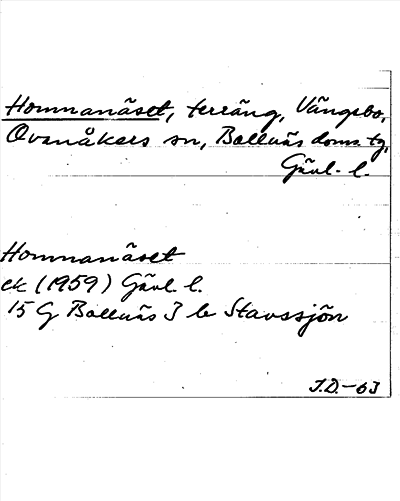 Homnanäset, terräng, Vängsbo,
Ovanåkers sn, Bollnäs doms. tg,
Gävl. l.
Homnanäset
ek (1959) Gävl. l.
15 G Bollnäs 3 b Stavssjön
J.D.-63